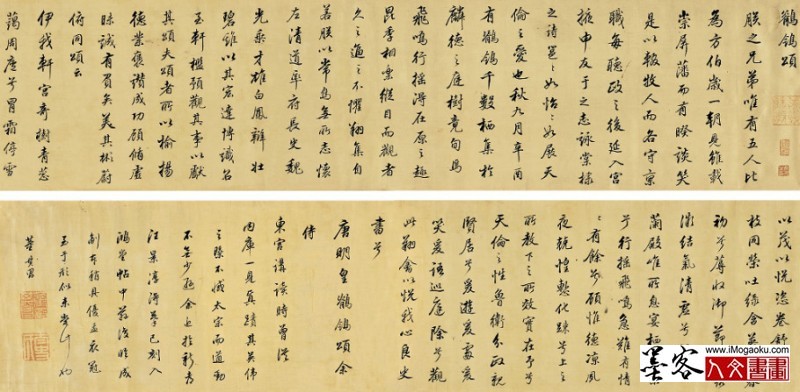 鶺鴒頌
朕之兄弟唯有五人比
為方伯歲一朝見雖載
崇屏藩而有睽談笑
是以輟牧人而各守京
職每聽政之後延入宮
掖申友于之志詠棠棣
之詩邕邕如怡怡如展天
倫之愛也秋九月辛酉
有鶺鴒千數栖集於
麟德之庭樹竟旬焉
飛鳴行搖得在原之趣
昆季相樂縱目而觀者
久之逼之不懼翔集自
若朕以常鳥無所志懷
左清道率府長史魏
光乘才雄白鳳辯壯
碧雞以其宏達博識召
至軒檻預觀其事以獻
其頌夫頌者所以揄揚
德業褒讚成功顧循虛
昧誠有負矣美其彬蔚
俯同頌云
伊我軒宮奇樹青葱
藹周廬兮冒霜停雪
以茂以悅恣卷舒
枝同榮吐綠含英
初兮蓐收御節
微結氣清虛兮
蘭殿唯所息宴栖
兮行搖飛鳴急難有情
情有餘兮顧惟德涼夙
夜兢惶慙化疎兮上之
所教下之所效實在予兮
天倫之性魯衛分政親
賢居兮爰遊爰處爰
笑爰語巡庭除兮觀
此翔禽以悅我心良史
書兮
唐明皇鶺鴒頌余
侍
東宮講讀時曾從
内庫一見真蹟其英偉
之
不
汪景淳得摹已刻入
鴻堂帖中
董其昌
墨客
www.iMogaoku.com
人文書画